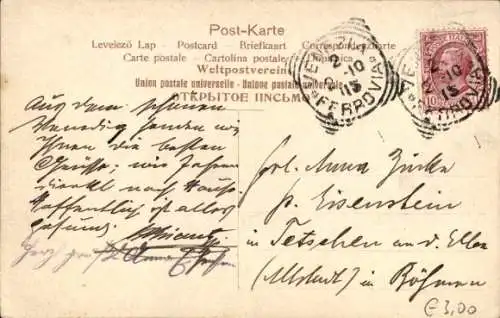 Post-Karte
Levelező Lap - Postcard - Briefkaart - Correspondenzkarte
Carte postale - Cartolina postale -
Weltpostverein
Union postale universelle - Unione postale universale
ОТКРЫТОЕ ПИСЬМО
VENEZIA
2-10
15
FERROVIA
10
Aus dem schönen
Venedig senden wir
Ihnen die besten
Grüsse. wir fahren
direkt nach Hause.
Hoffentlich ist alles
gesund.
Frl. Anna
p. Eisenstein
in Tetschen a. d. Elbe
(Altstadt) in Böhmen
€ 3,00